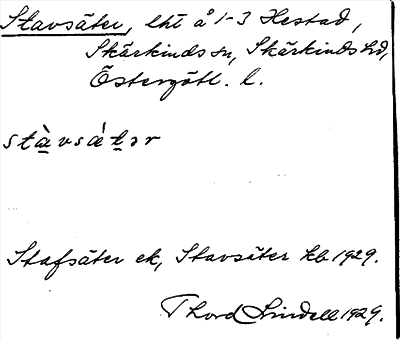 Stavsäter, lht å 1-3 Hestad,
Skärkinds sn, Skärkinds hd,
Östergötl. l.
stàvsátər
Stafsäter ek, Stavsäter kb 1929.
Thord Lindell 1929.